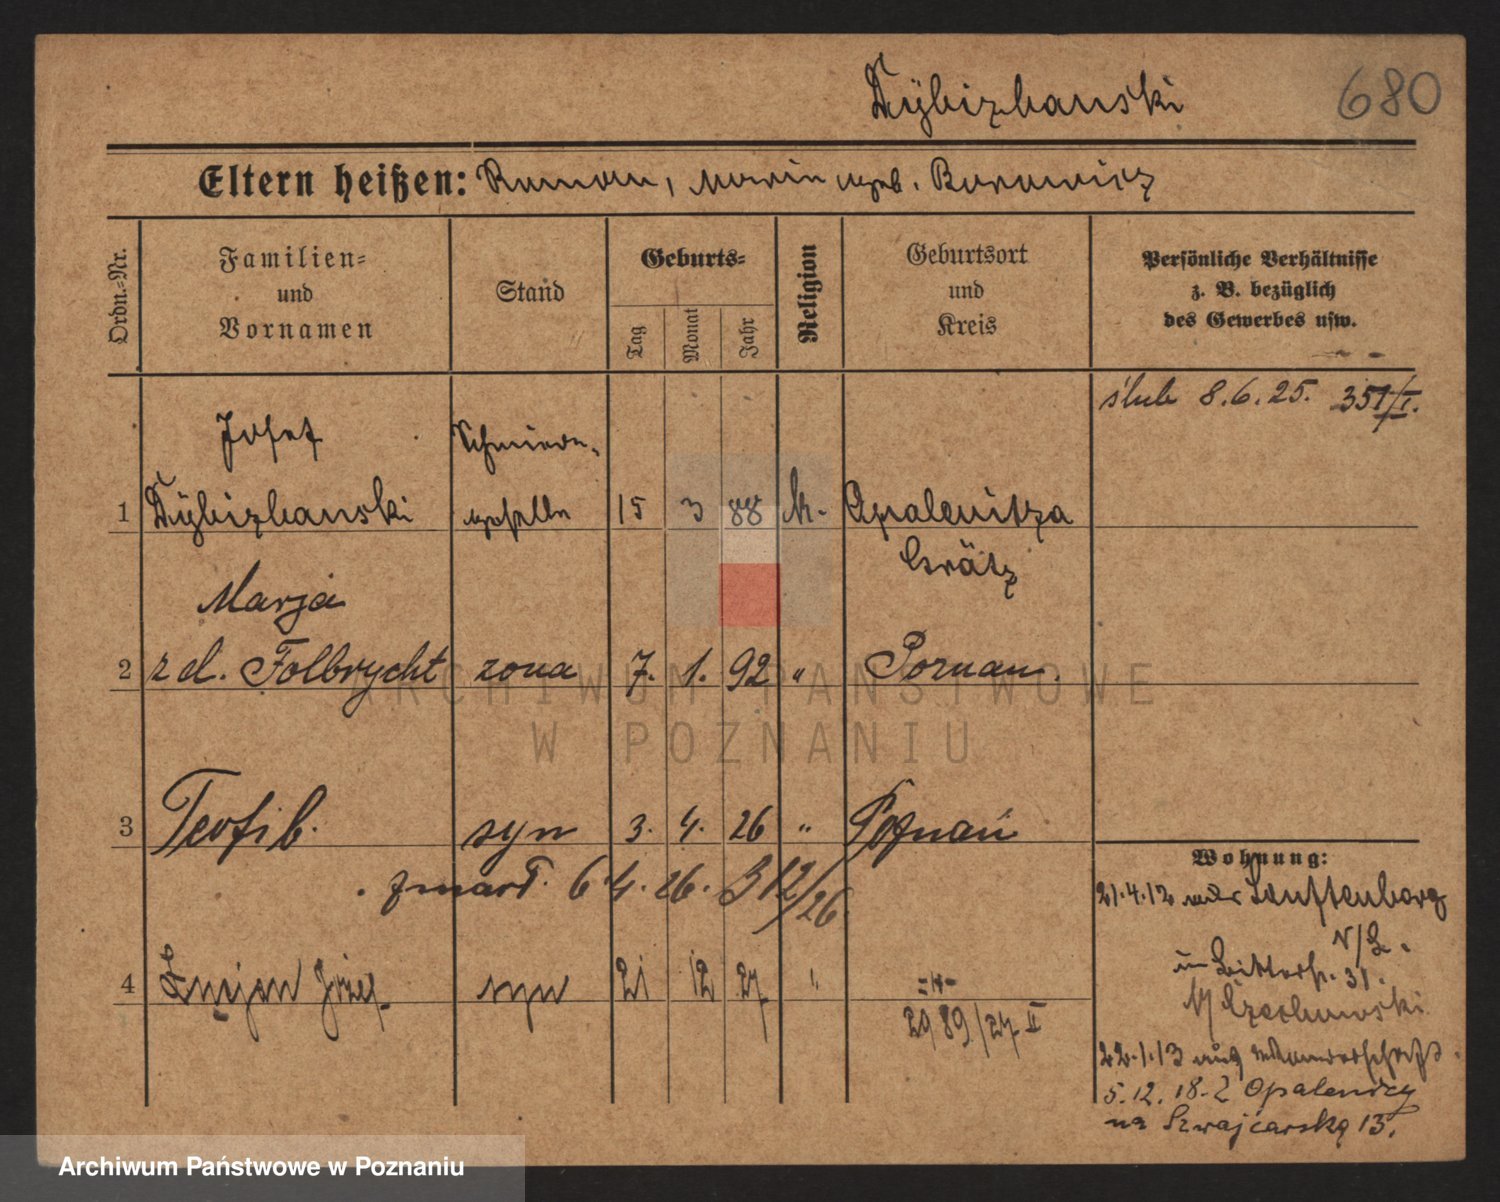 Dÿbizbanski
680
Eltern heißen: Roman, Maria geb. Borowicz
Ordn.-Nr.
Familien-
und
Vornamen
Stand
Geburts-
Tag
Monat
Jahr
Religion
Geburtsort
und
Kreis
Persönliche Verhältnisse
z. B. bezüglich
des Gewerbes usw.
ślub 8.6.25. 351/I.
Josef
Schmiede-
1 Dÿbizbanski geselle 15 3 88 k. Opalenitza
Grätz
Marja
2 z d. Folbrycht zona 7. 1. 92 " Poznan.
3 Teofil. syn 3. 4. 26 " Poznań
zmarł. 6.4.26. 312/26.
4 Lucjan Józef syn 21 12 27 " -"-
2989/27 II
Wohnung:
21.4.12 Lauftenborg
31.
Czechowski
22.1.13 auf Wanderschaft.
5.12.18. z Opalenicy
na Szwajcarską 13.
ARCHIWUM PAŃSTWOWE
W POZNANIU
Archiwum Państwowe w Poznaniu